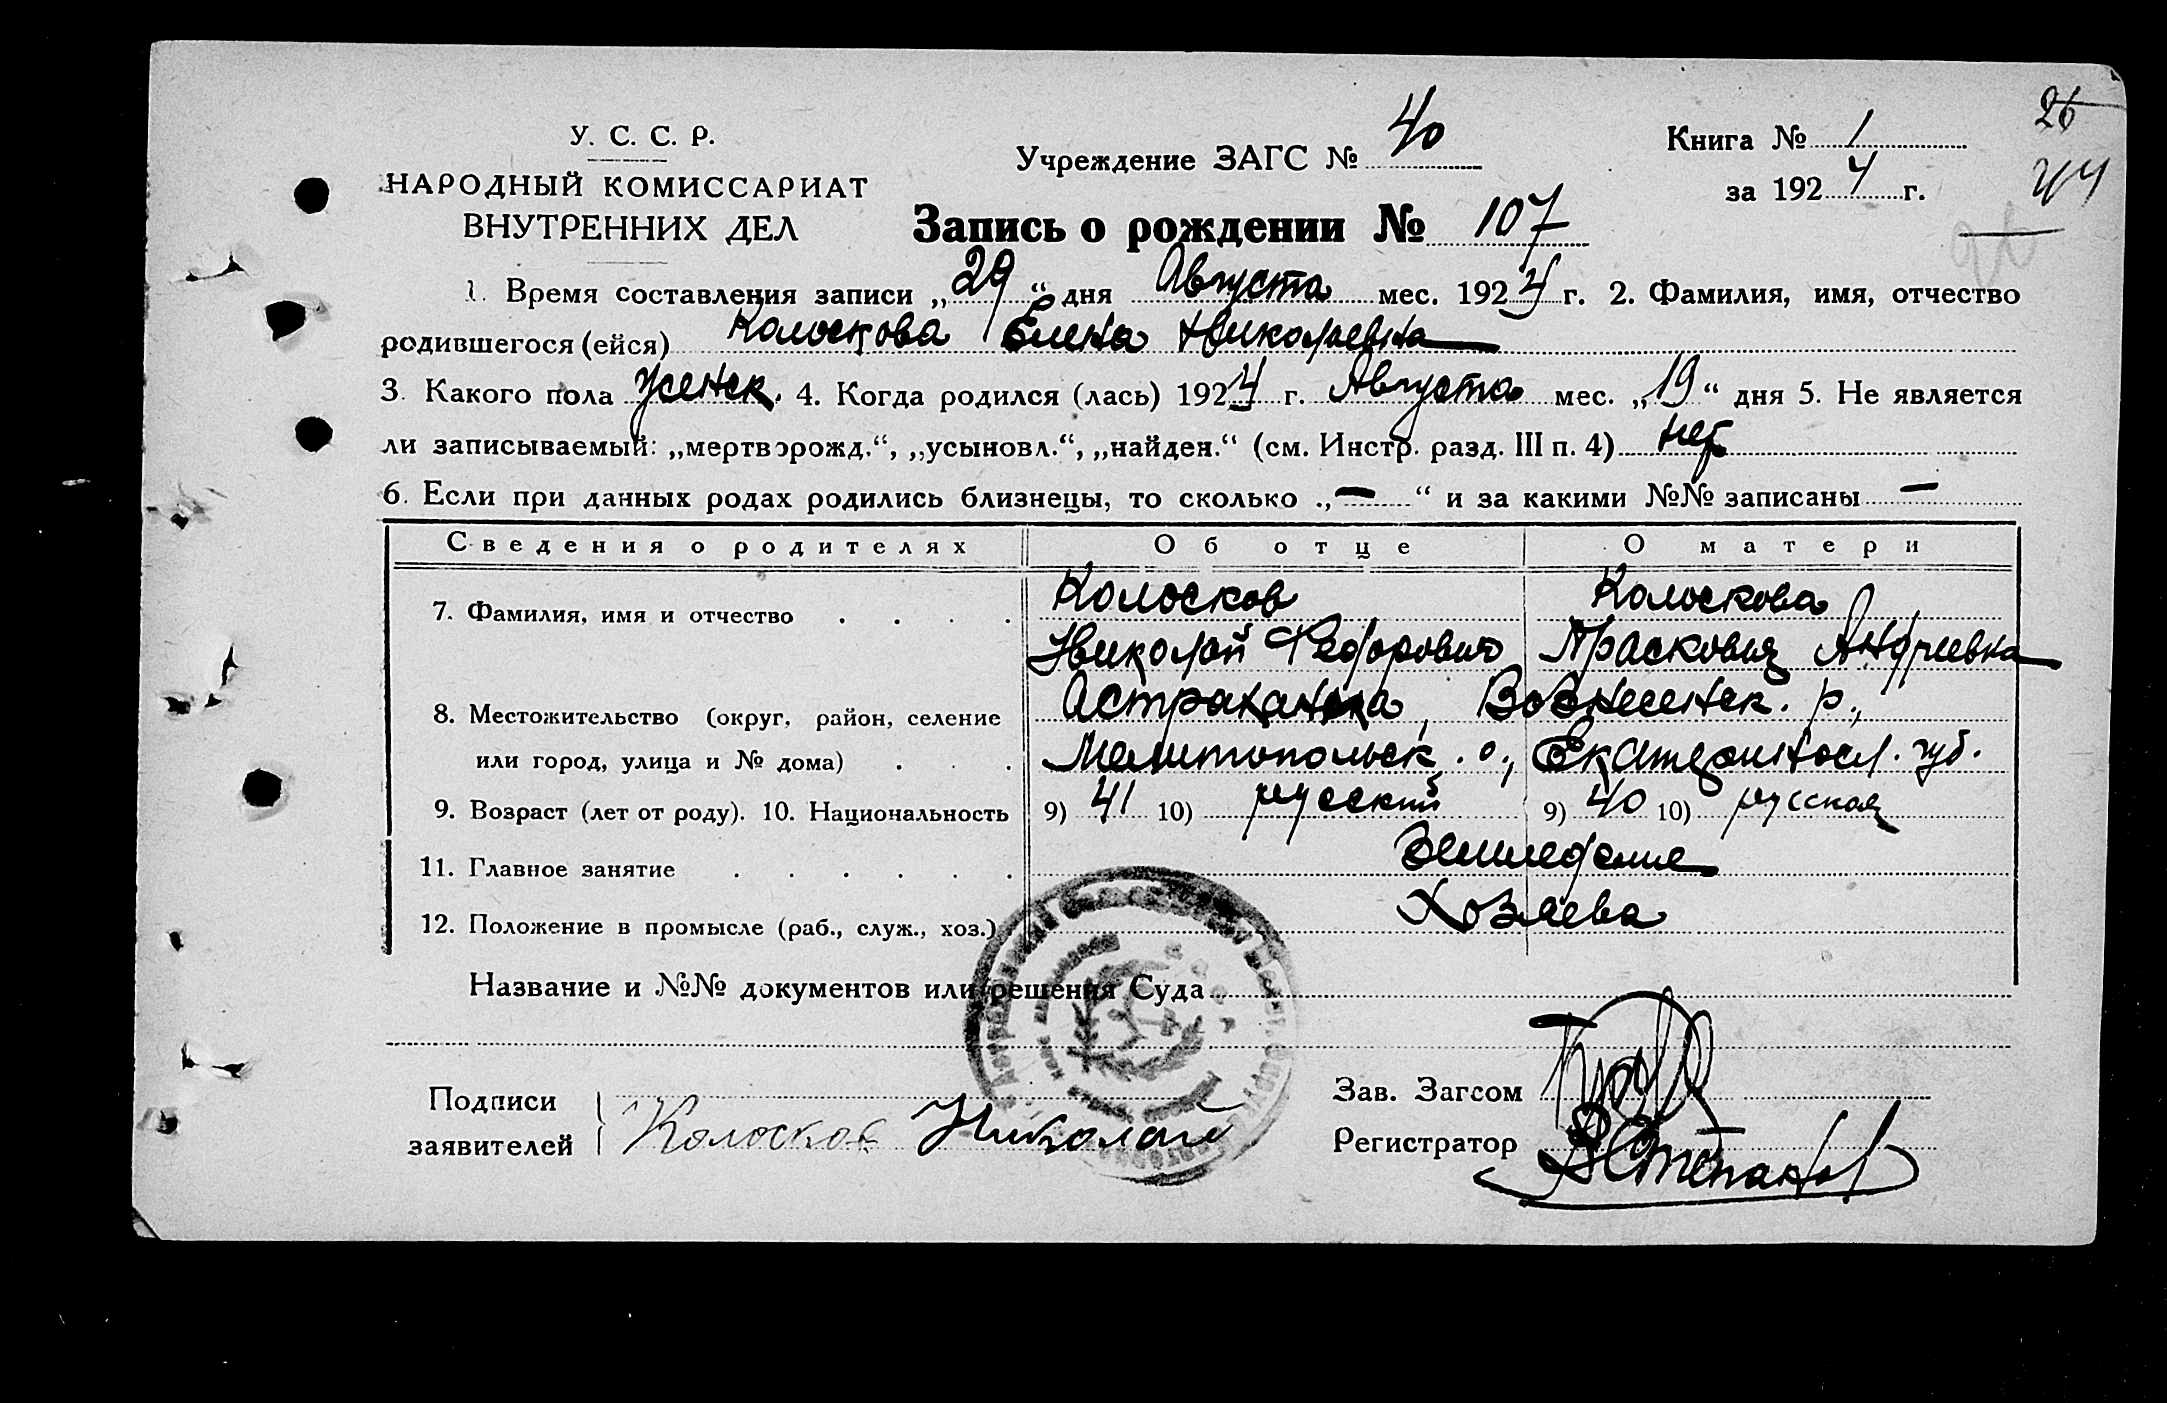 26
У. С. С. Р.
НАРОДНЫЙ КОМИССАРИАТ
ВНУТРЕННИХ ДЕЛ
Учреждение ЗАГС № 40
Книга № 1
за 1924 г.
Запись о рождении № 107
1. Время составления записи „29“ дня Августа мес. 1924 г. 2. Фамилия, имя, отчество
родившегося (ейся) Колоскова Елена Николаевна
3. Какого пола женск. 4. Когда родился (лась) 1924 г. Августа мес. „19“ дня 5. Не является
ли записываемый: „мертворожд.“, „усыновл.“, „найден.“ (см. Инстр. разд. III п. 4) нет
6. Если при данных родах родились близнецы, то сколько „—“ и за какими №№ записаны —
Сведения о родителях Об отце О матери
7. Фамилия, имя и отчество . . . . Колосков Колоскова
Николай Федорович Прасковия Андреевна
8. Местожительство (округ, район, селение Астраханка, Вознесенск. р.,
или город, улица и № дома) . . . Мелитопольск. о., Екатериносл. губ.
9. Возраст (лет от роду). 10. Национальность 9) 41 10) русский 9) 40 10) русская
11. Главное занятие . . . . . . Земледелие
12. Положение в промысле (раб., служ., хоз.) Хозяева
Название и №№ документов или решения Суда
Подписи
заявителей Колосков Николай
Зав. Загсом
Регистратор Степанов